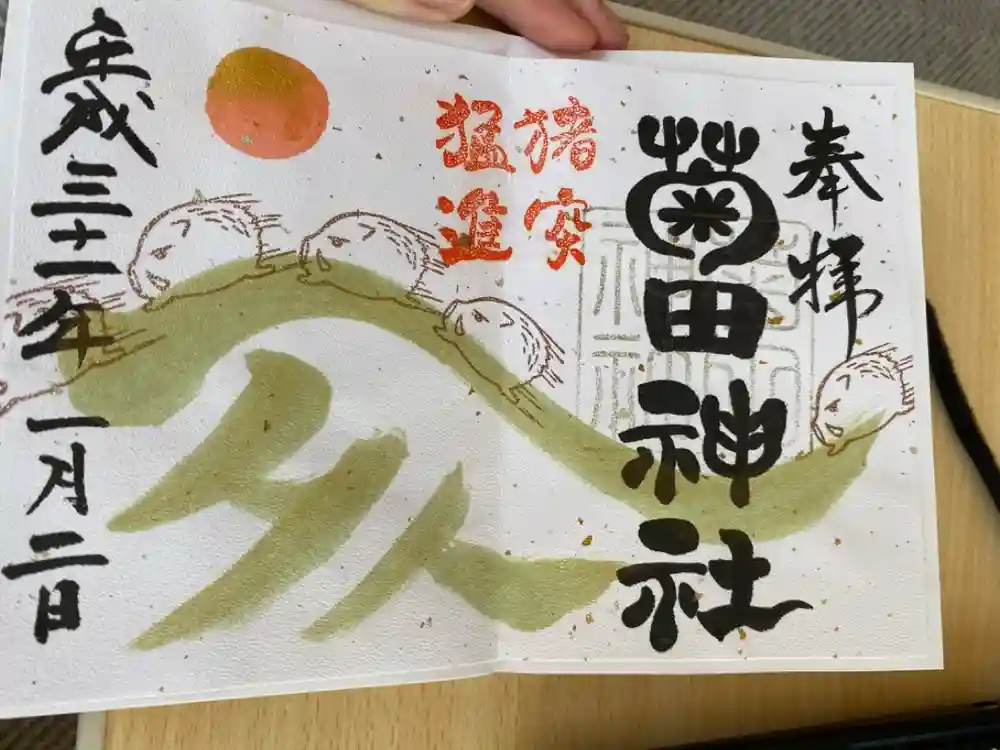 奉拝
菊田神社
猪突
猛進
平成三十一年 一月二日